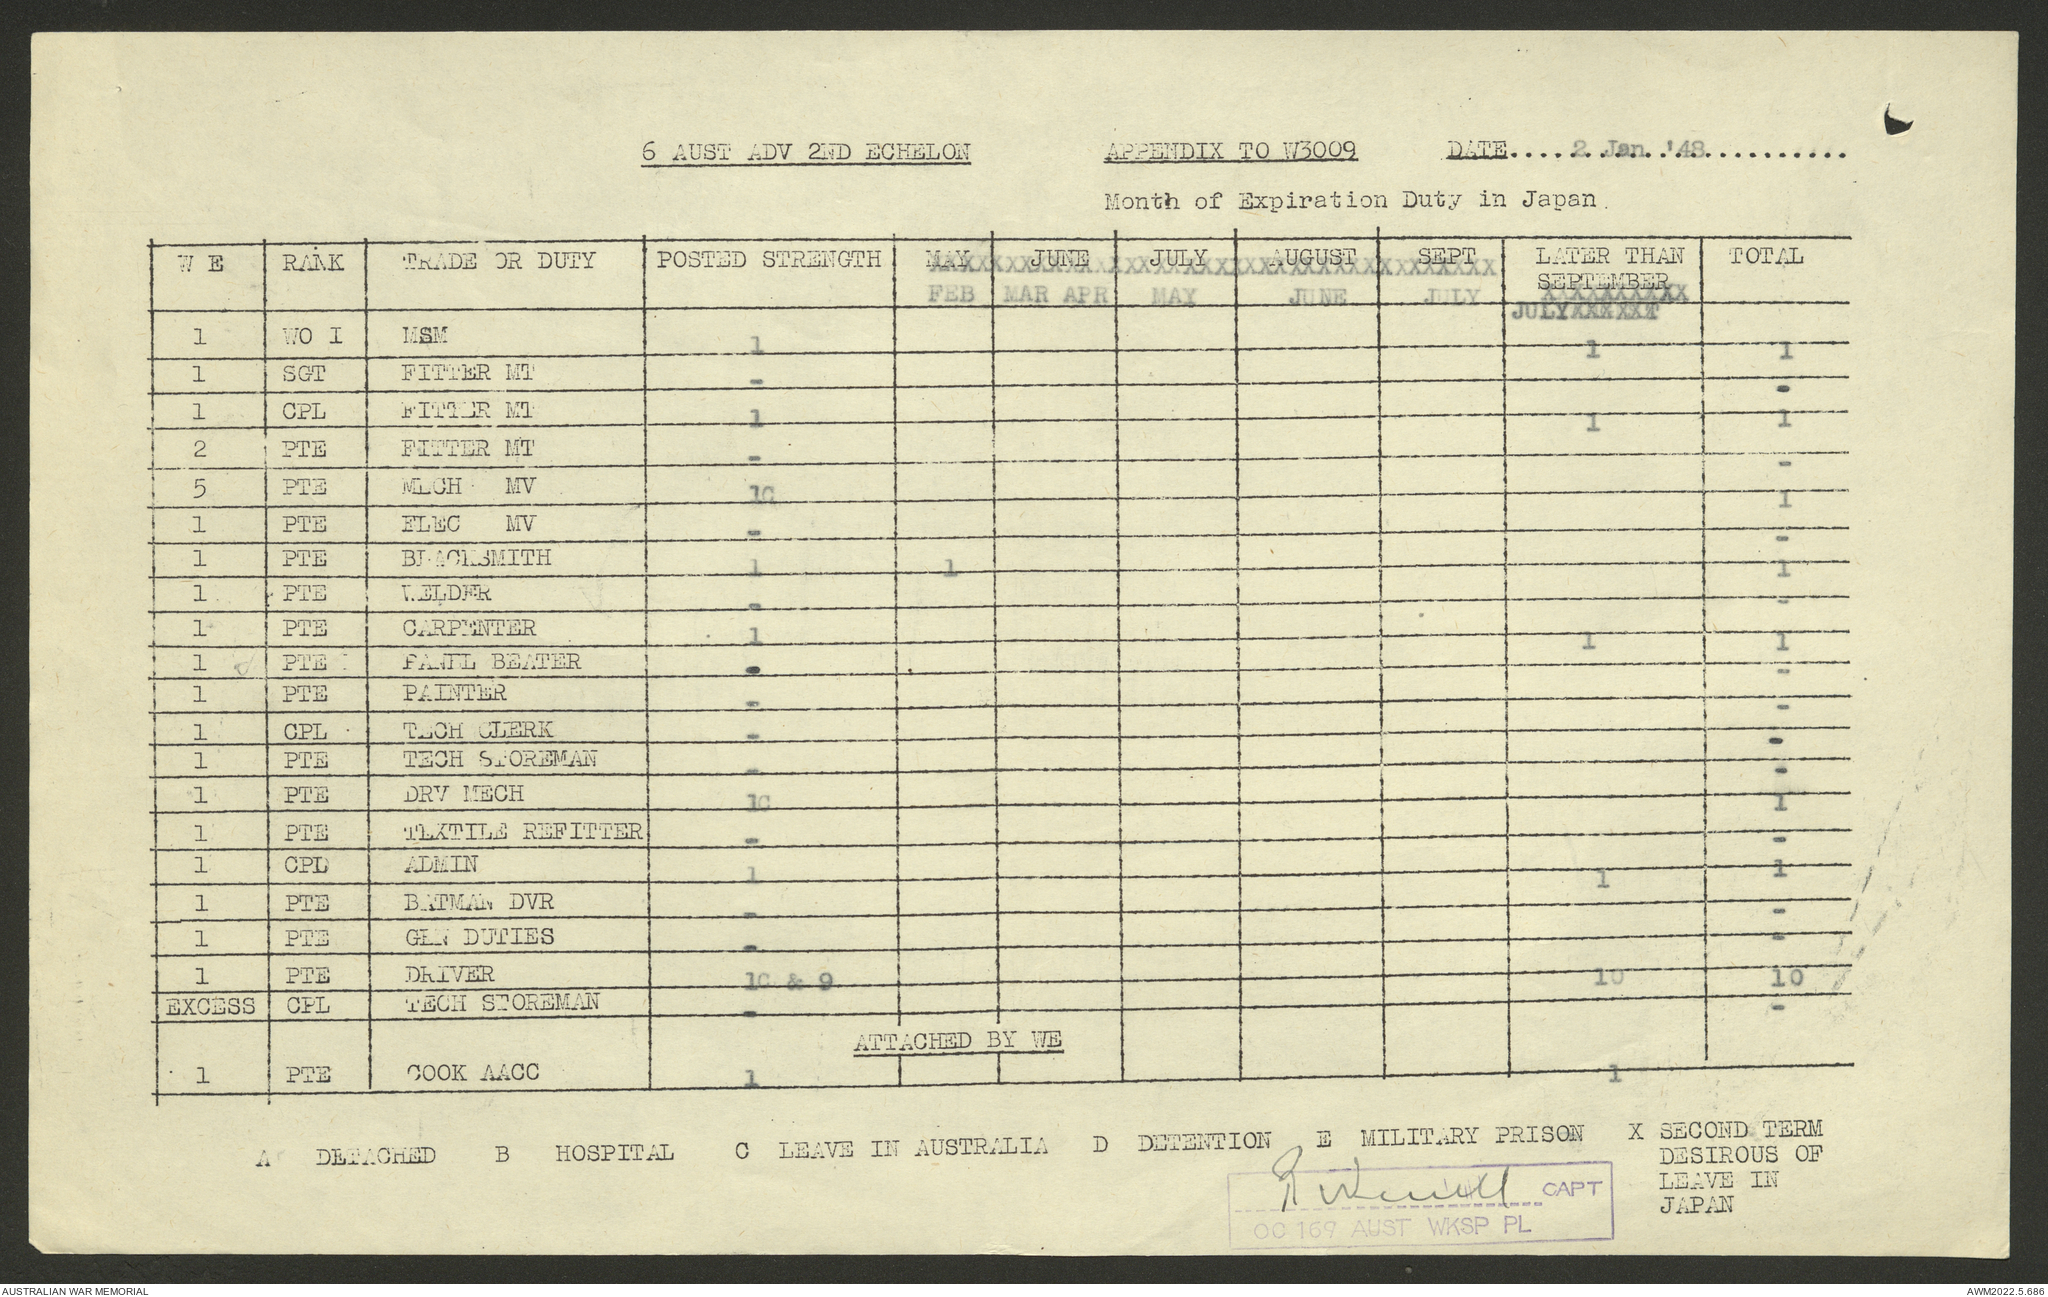 6 AUST ADV 2ND ECHELON APPENDIX TO W3009 DATE.... 2 Jan '48............
Month of Expiration Duty in Japan.
W E RANK TRADE OR DUTY POSTED STRENGTH MAY JUNE JULY AUGUST SEPT LATER THAN SEPTEMBER TOTAL
FEB MAR APR MAY JUNE JULY JULY
1 WO I MSM 1 1 1
1 SGT FITTER MT - -
1 CPL FITTER MT 1 1 1
2 PTE FITTER MT - -
5 PTE MECH MV 1C 1
1 PTE ELEC MV - -
1 PTE BLACKSMITH 1 1 1
1 PTE WELDER - -
1 PTE CARPENTER 1 1 1
1 PTE PANEL BEATER - -
1 PTE PAINTER - -
1 CPL TECH CLERK - -
1 PTE TECH STOREMAN - -
1 PTE DRV MECH 1C 1
1 PTE TEXTILE REFITTER - -
1 CPL ADMIN 1 1 1
1 PTE BATMAN DVR - -
1 PTE GEN DUTIES - -
1 PTE DRIVER 1C & 9 10 10
EXCESS CPL TECH STOREMAN - -
ATTACHED BY WE
1 PTE COOK AACC 1 1
A DETACHED B HOSPITAL C LEAVE IN AUSTRALIA D DETENTION E MILITARY PRISON X SECOND TERM
DESIROUS OF
LEAVE IN
JAPAN
CAPT
OC 169 AUST WKSP PL
AUSTRALIAN WAR MEMORIAL AWM2022.5.686